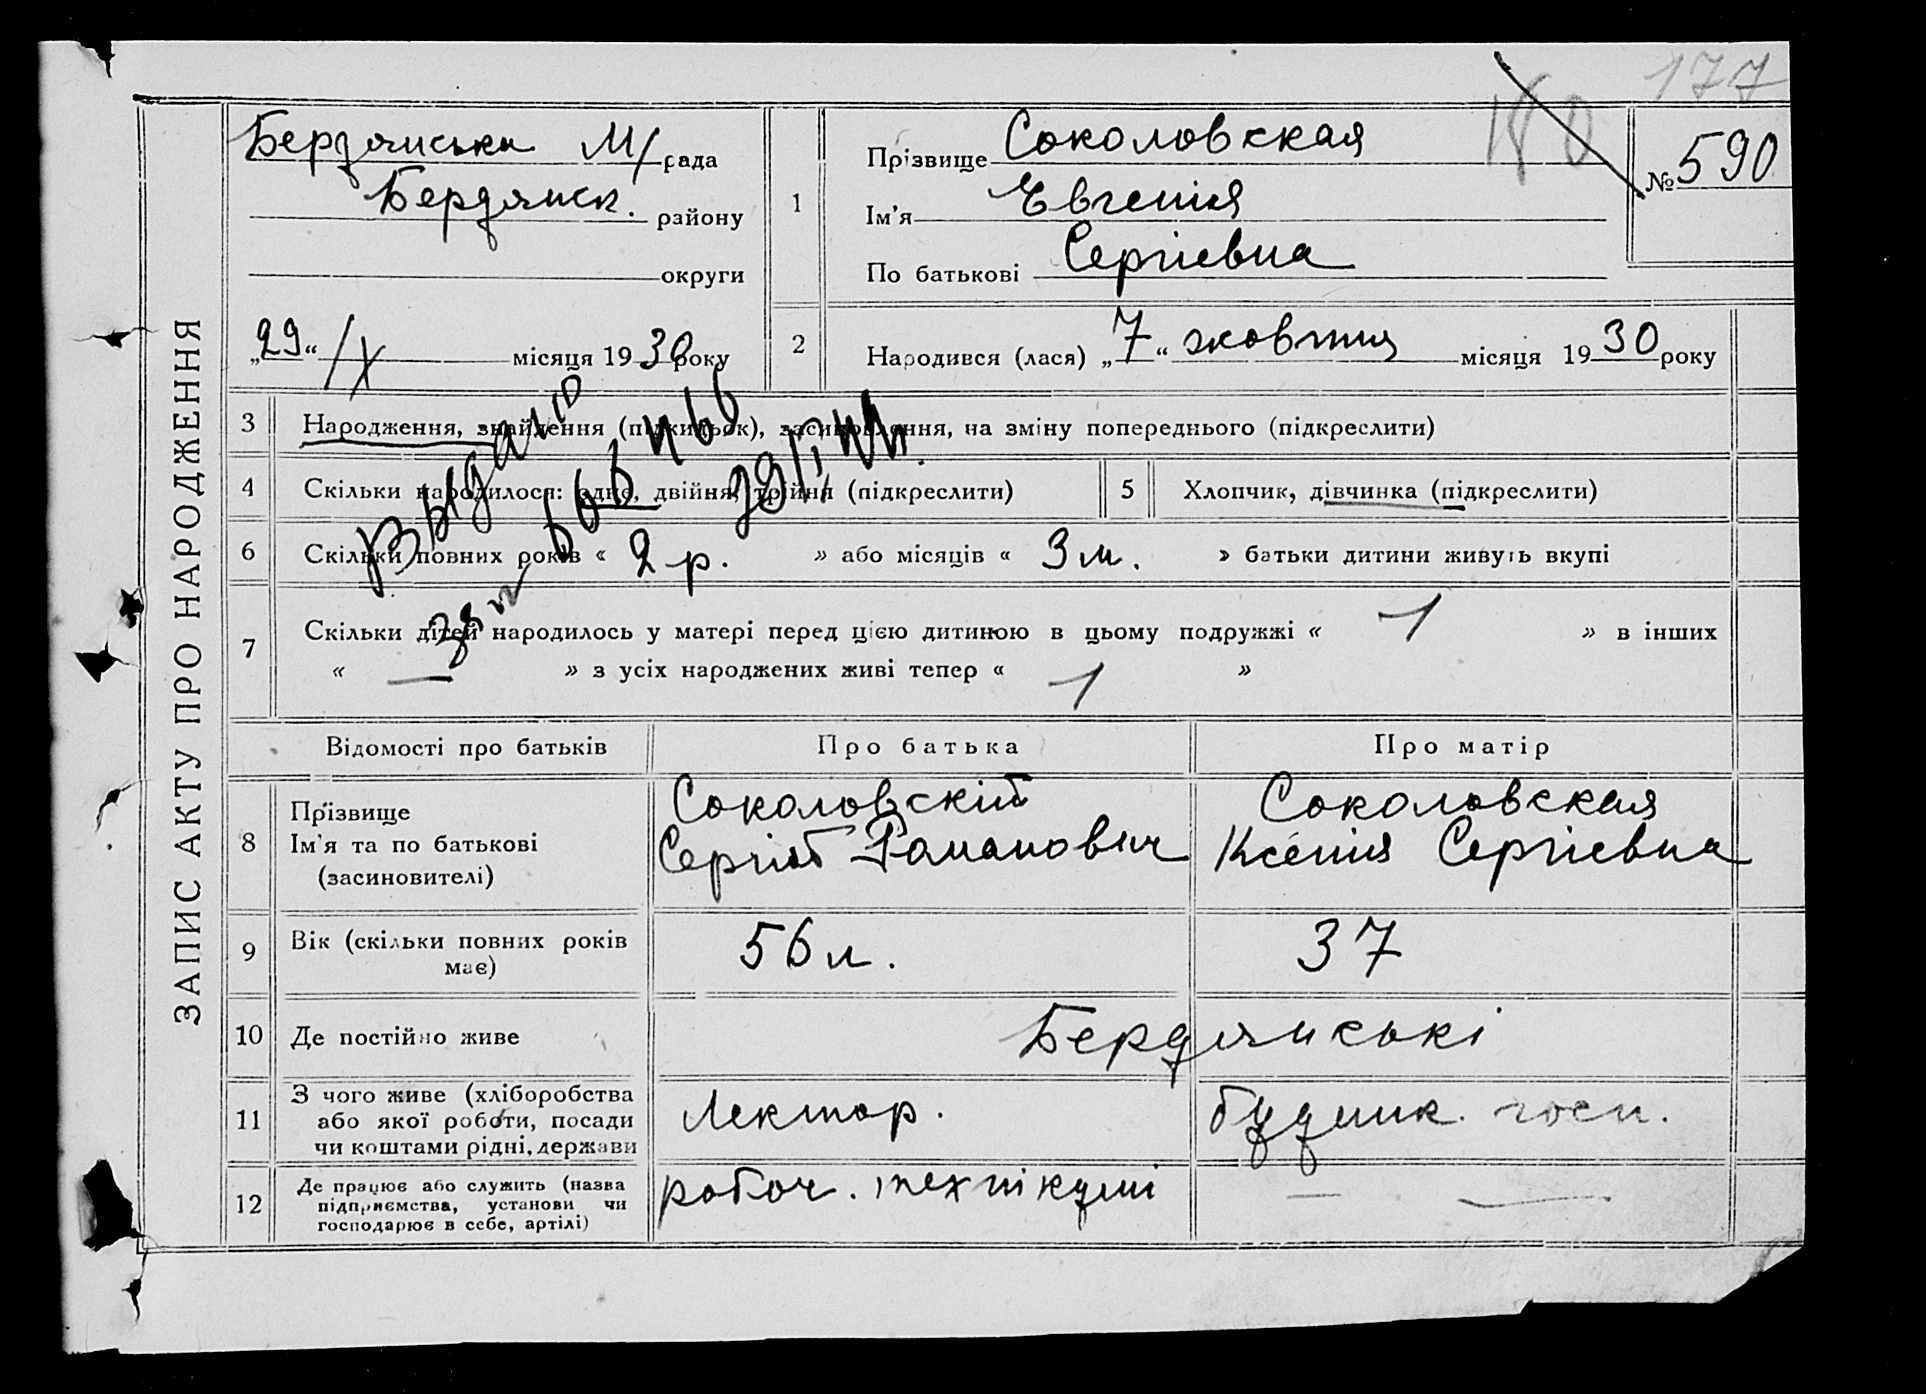 177
180
ЗАПИС АКТУ ПРО НАРОДЖЕННЯ
Бердянська М/рада
Бердянск. району
округи
„29“ /X місяця 1930 року
1
Прізвище Соколовская
Ім'я Евгенія
По батькові Сергіевна
№ 590
2 Народився (лася) „7“ жовтня місяця 1930 року
3 Народження, знайдення (підкидьок), засиновлення, на зміну попереднього (підкреслити)
4 Скільки народилося: одне, двійня, трійня (підкреслити)
5 Хлопчик, дівчинка (підкреслити)
6 Скільки повних років « 2 р. » або місяців « 3 м. » батьки дитини живуть вкупі
7 Скільки дітей народилось у матері перед цією дитиною в цьому подружжі « 1 » в інших
« — » з усіх народжених живі тепер « 1 »
Выдано
Відомості про батьків Про батька Про матір
8 Прізвище
Ім'я та по батькові
(засиновителі)
Соколовскій
Сергій Романович
Соколовская
Ксенія Сергіевна
9 Вік (скільки повних років
має)
56 л. 37
10 Де постійно живе Бердянські
11 З чого живе (хліборобства
або якої роботи, посади
чи коштами рідні, держави
Лектор. будинк. госп.
12 Де працює або служить (назва
підприємства, установи чи
господарює в себе, артілі)
робоч. технікумі — —